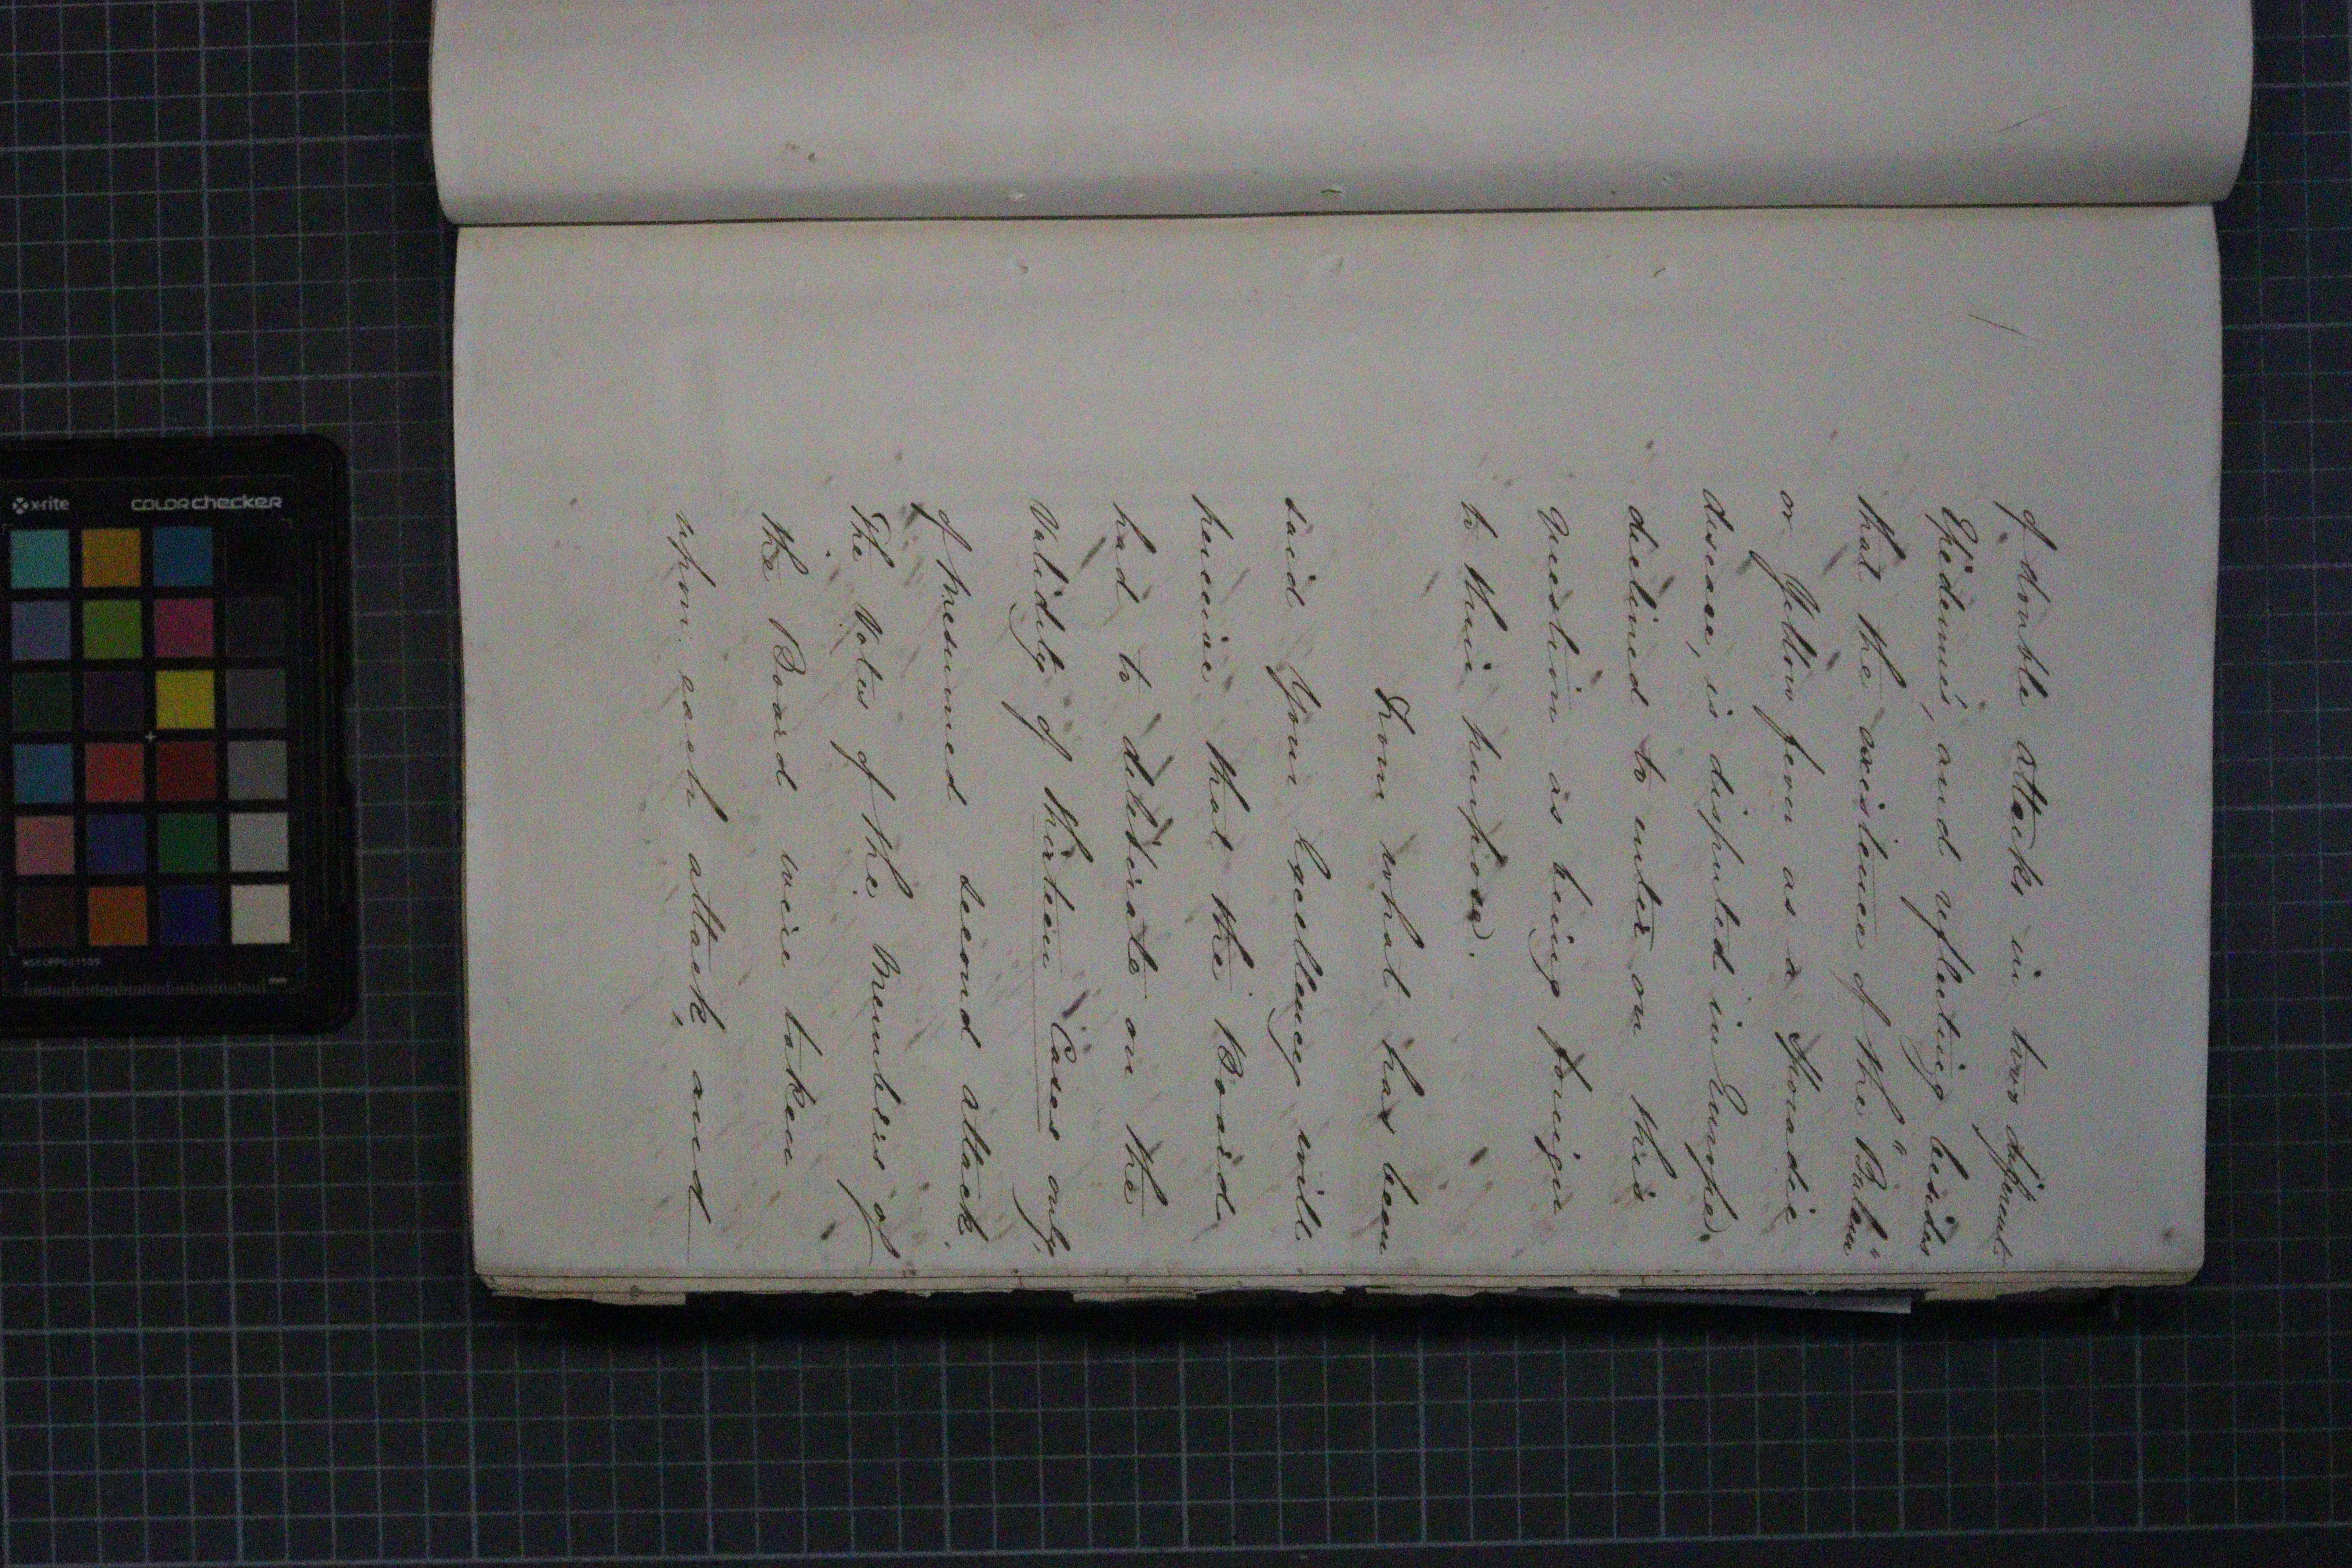 of double attacks in two different
Epidemics, and reflecting besides
that the existence of the "Bulam"
or Yellow fever as a Sporadic
disease, is disputed in Europe,
declined to enter on this
question as being foreign
to their purpose.
From what has been
said Your Excellency will
perceive that the Board
had to deliberate on the
Validity of thirteen Cases only,
of presumed second attack.
The Votes of the Members of
the Board were taken
upon each attack, and
x-rite
colorchecker